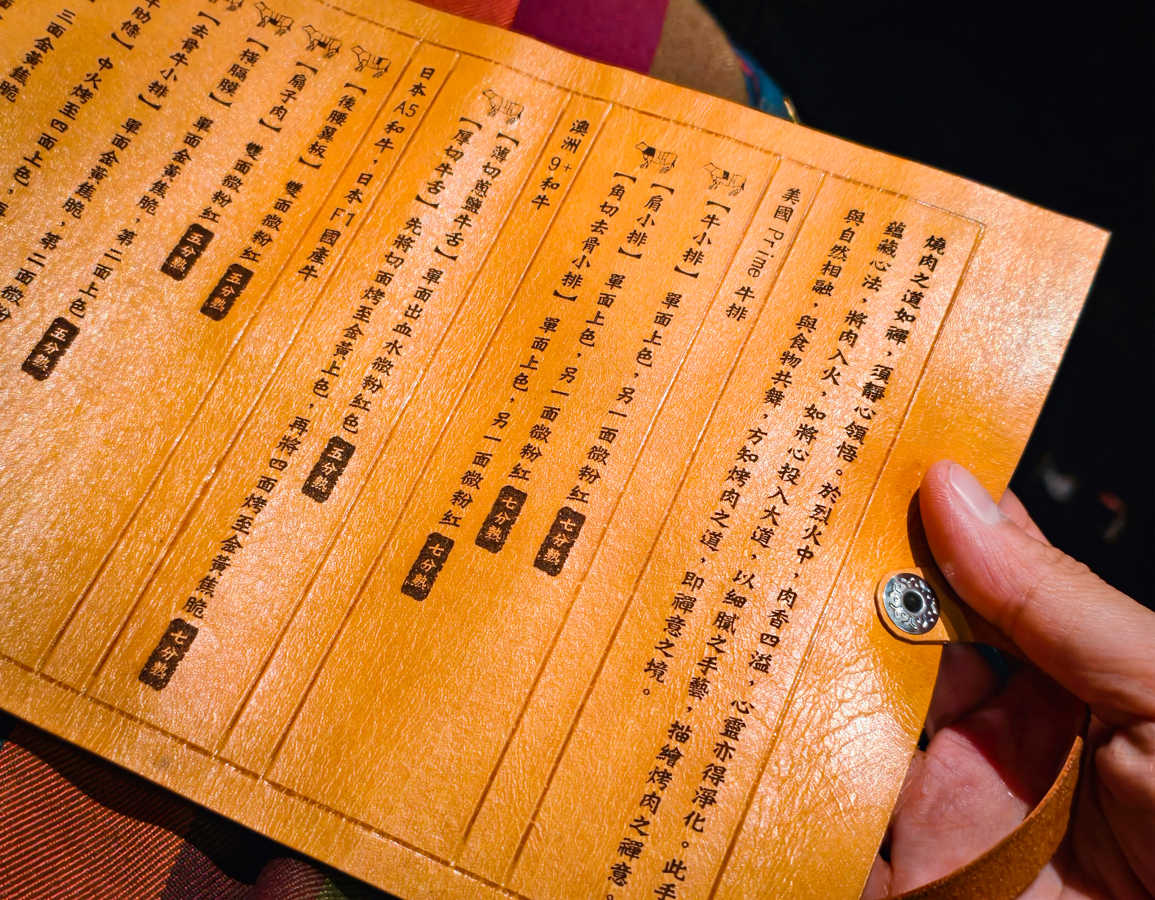 燒肉之道如禪，須靜心領悟。於烈火中，肉香四溢，心靈亦得淨化。此手
蘊藏心法，將肉入火，如將心投入大道，以細膩之手藝，描繪烤肉之禪意。
與自然相融，與食物共舞，方知烤肉之道，即禪意之境。
美國 Prime 牛排
【牛小排】單面上色，另一面微粉紅 七分熟
【肩小排】單面上色，另一面微粉紅 七分熟
【角切去骨小排】單面上色，另一面微粉紅 七分熟
澳洲 9+ 和牛
【薄切蔥鹽牛舌】單面出血水微粉紅色 五分熟
【厚切牛舌】先將切面烤至金黃上色，再將四面烤至金黃焦脆 七分熟
日本 A5 和牛，日本 F1 國產牛
【後腰翼板】雙面微粉紅 五分熟
【扇子肉】雙面微粉紅 五分熟
【橫膈膜】單面金黃焦脆，第二面上色 五分熟
【去骨牛小排】單面金黃焦脆，第二面微粉
牛肋條】中火烤至四面上色，再
三面金黃焦脆